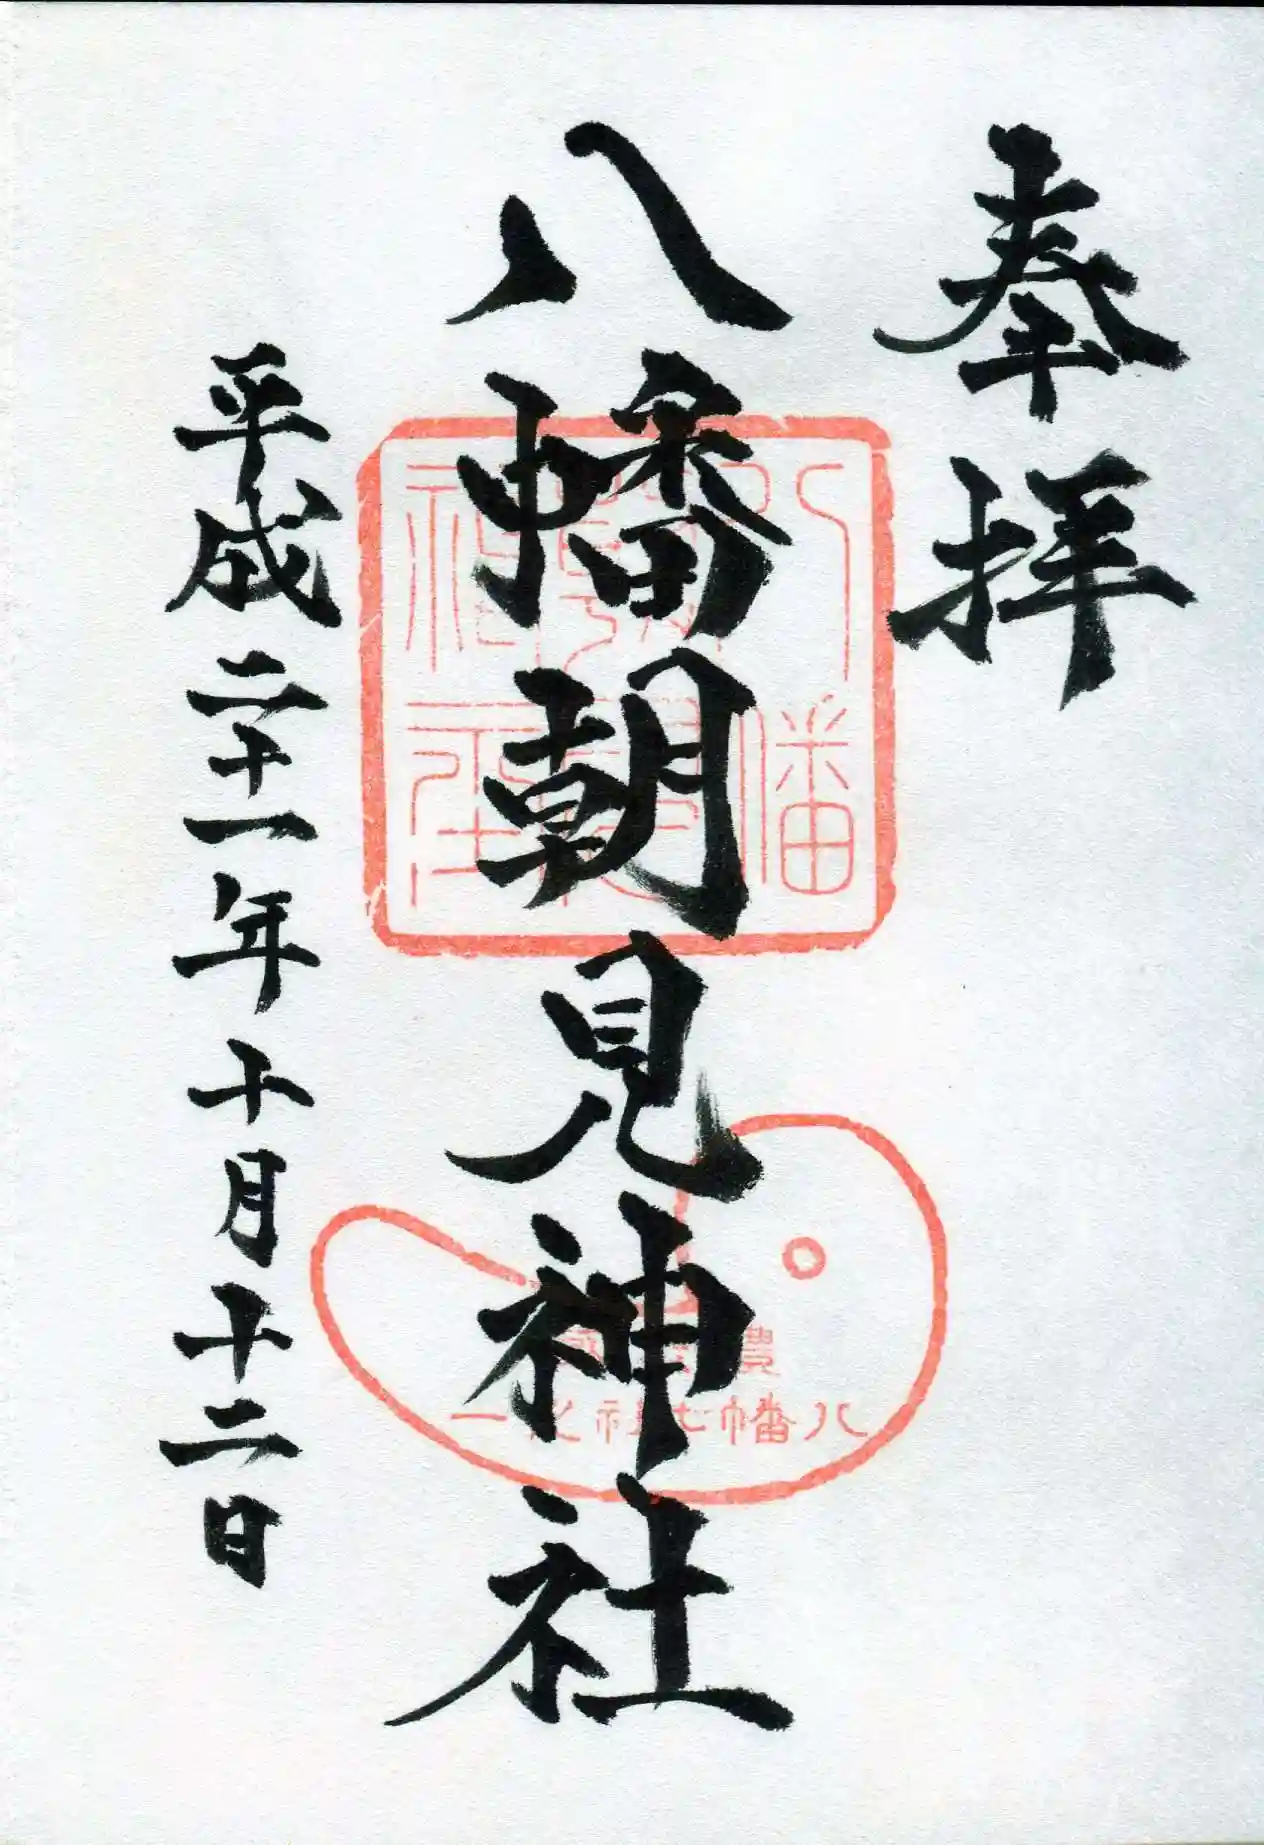 奉拝
八幡朝見神社
平成二十一年十月十二日
八幡朝見神社
豊
八幡七社之一